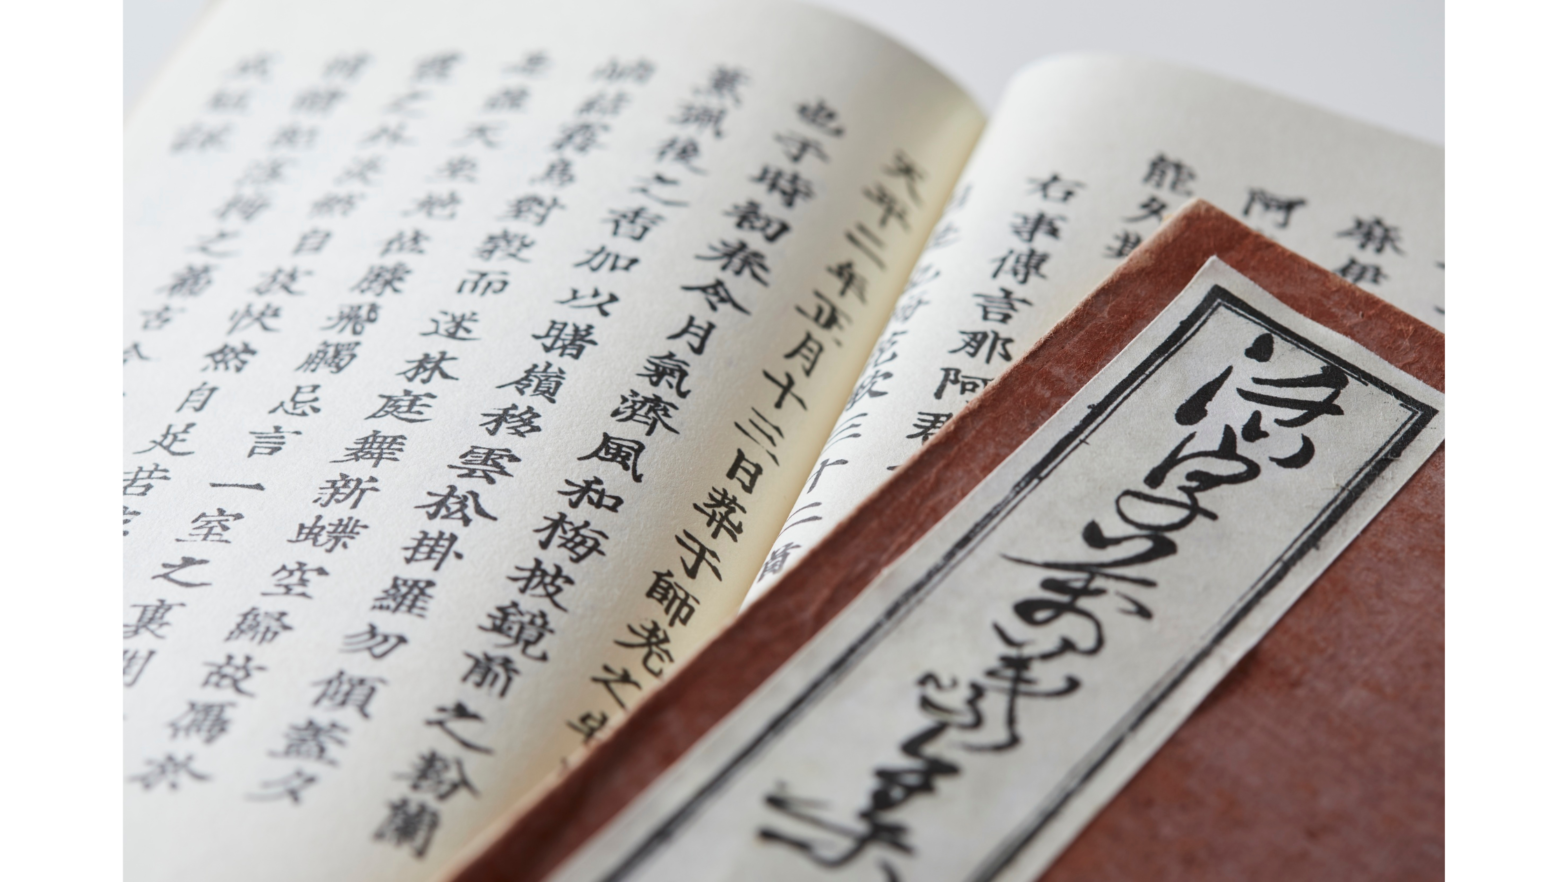 麻毘
阿
能久斯
右事傳言那阿
三十二首
天平二年正月十三日萃于師老之
也于時初春令月氣濟風和梅披鏡前之粉蘭
薰珮後之香加以曙嶺移雲松掛羅勿傾蓋夕
岫結霧鳥對縠而迷林庭舞新蝶空歸故鴈於
是蓋天坐地促膝飛觴忘言一室之裏開
霞之外淡然自放快然自足若
情詩紀落梅之篇古今
成短詠
活字万葉集